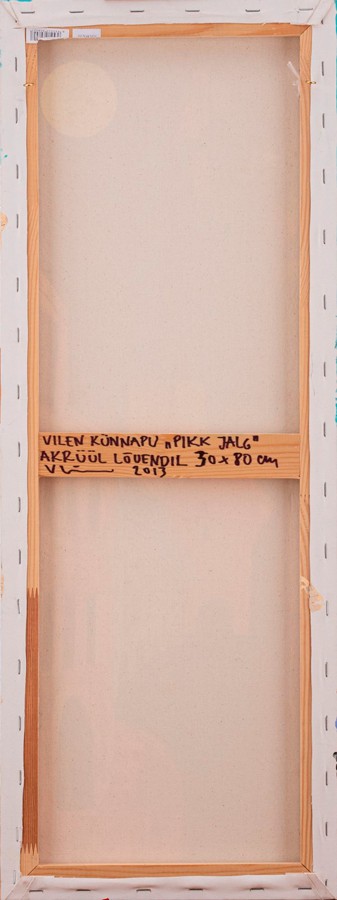 VILEN KÜNNAPU „PIKK JALG"
AKRÜÜL LÕUENDIL 30 x 80 cm
2013